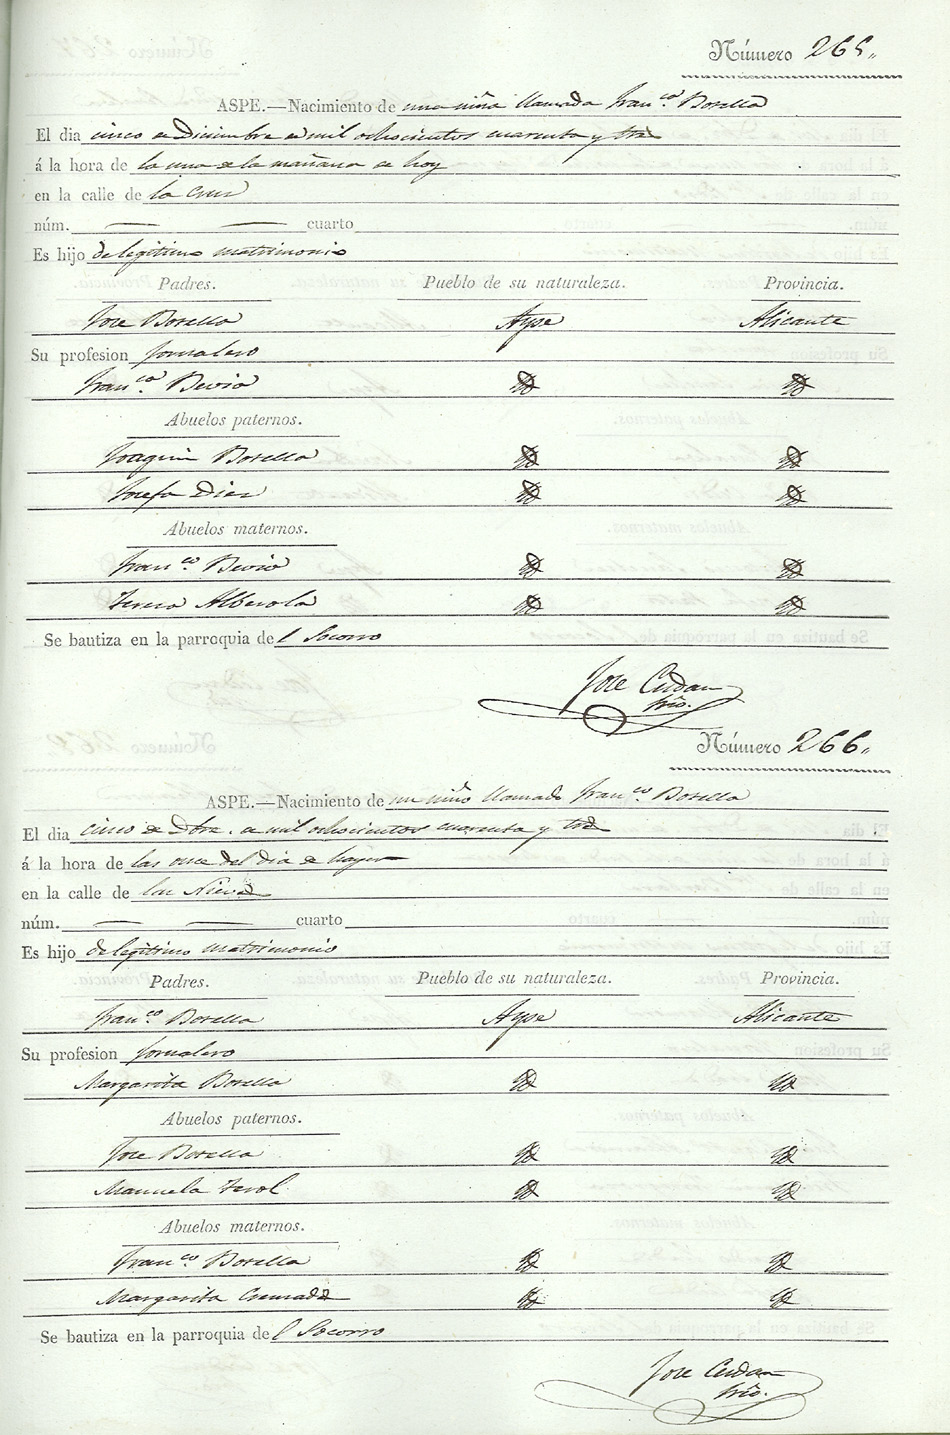 Número 265.
ASPE.—Nacimiento de una niña llamada Fran.ca Botella
El dia cinco de Diciembre de mil ochocientos cuarenta y tres
á la hora de la una de la mañana de hoy
en la calle de la Cruz
núm. — — cuarto
Es hijo de legitimo matrimonio
Padres. Pueblo de su naturaleza. Provincia.
Jose Botella Aspe Alicante
Su profesion Jornalero
Fran.ca Bevia
Abuelos paternos.
Joaquin Botella
Josefa Diez
Abuelos maternos.
Fran.co Bevia
Teresa Alberola
Se bautiza en la parroquia del Socorro
Jose
Srio.
Número 266.
ASPE.—Nacimiento de un niño llamado Fran.co Botella
El dia cinco de Dbre. de mil ochocientos cuarenta y tres
á la hora de las once del dia de
en la calle de las Nieves
núm. — — cuarto
Es hijo de legitimo matrimonio
Padres. Pueblo de su naturaleza. Provincia.
Fran.co Botella Aspe Alicante
Su profesion Jornalero
Margarita Botella
Abuelos paternos.
Jose Botella
Manuela Terol
Abuelos maternos.
Fran.co Botella
Margarita
Se bautiza en la parroquia del Socorro
Jose
Srio.